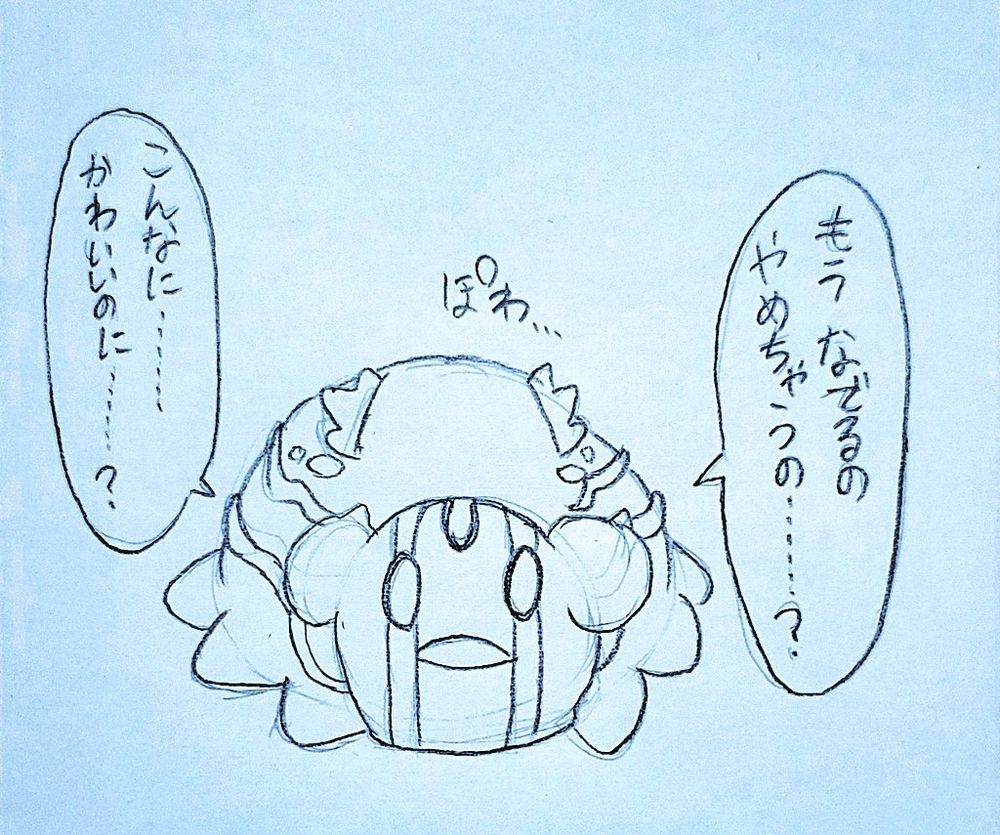 もう なでるの
やめちゃうの……?
ぽわ…
こんなに………
かわいいのに………?